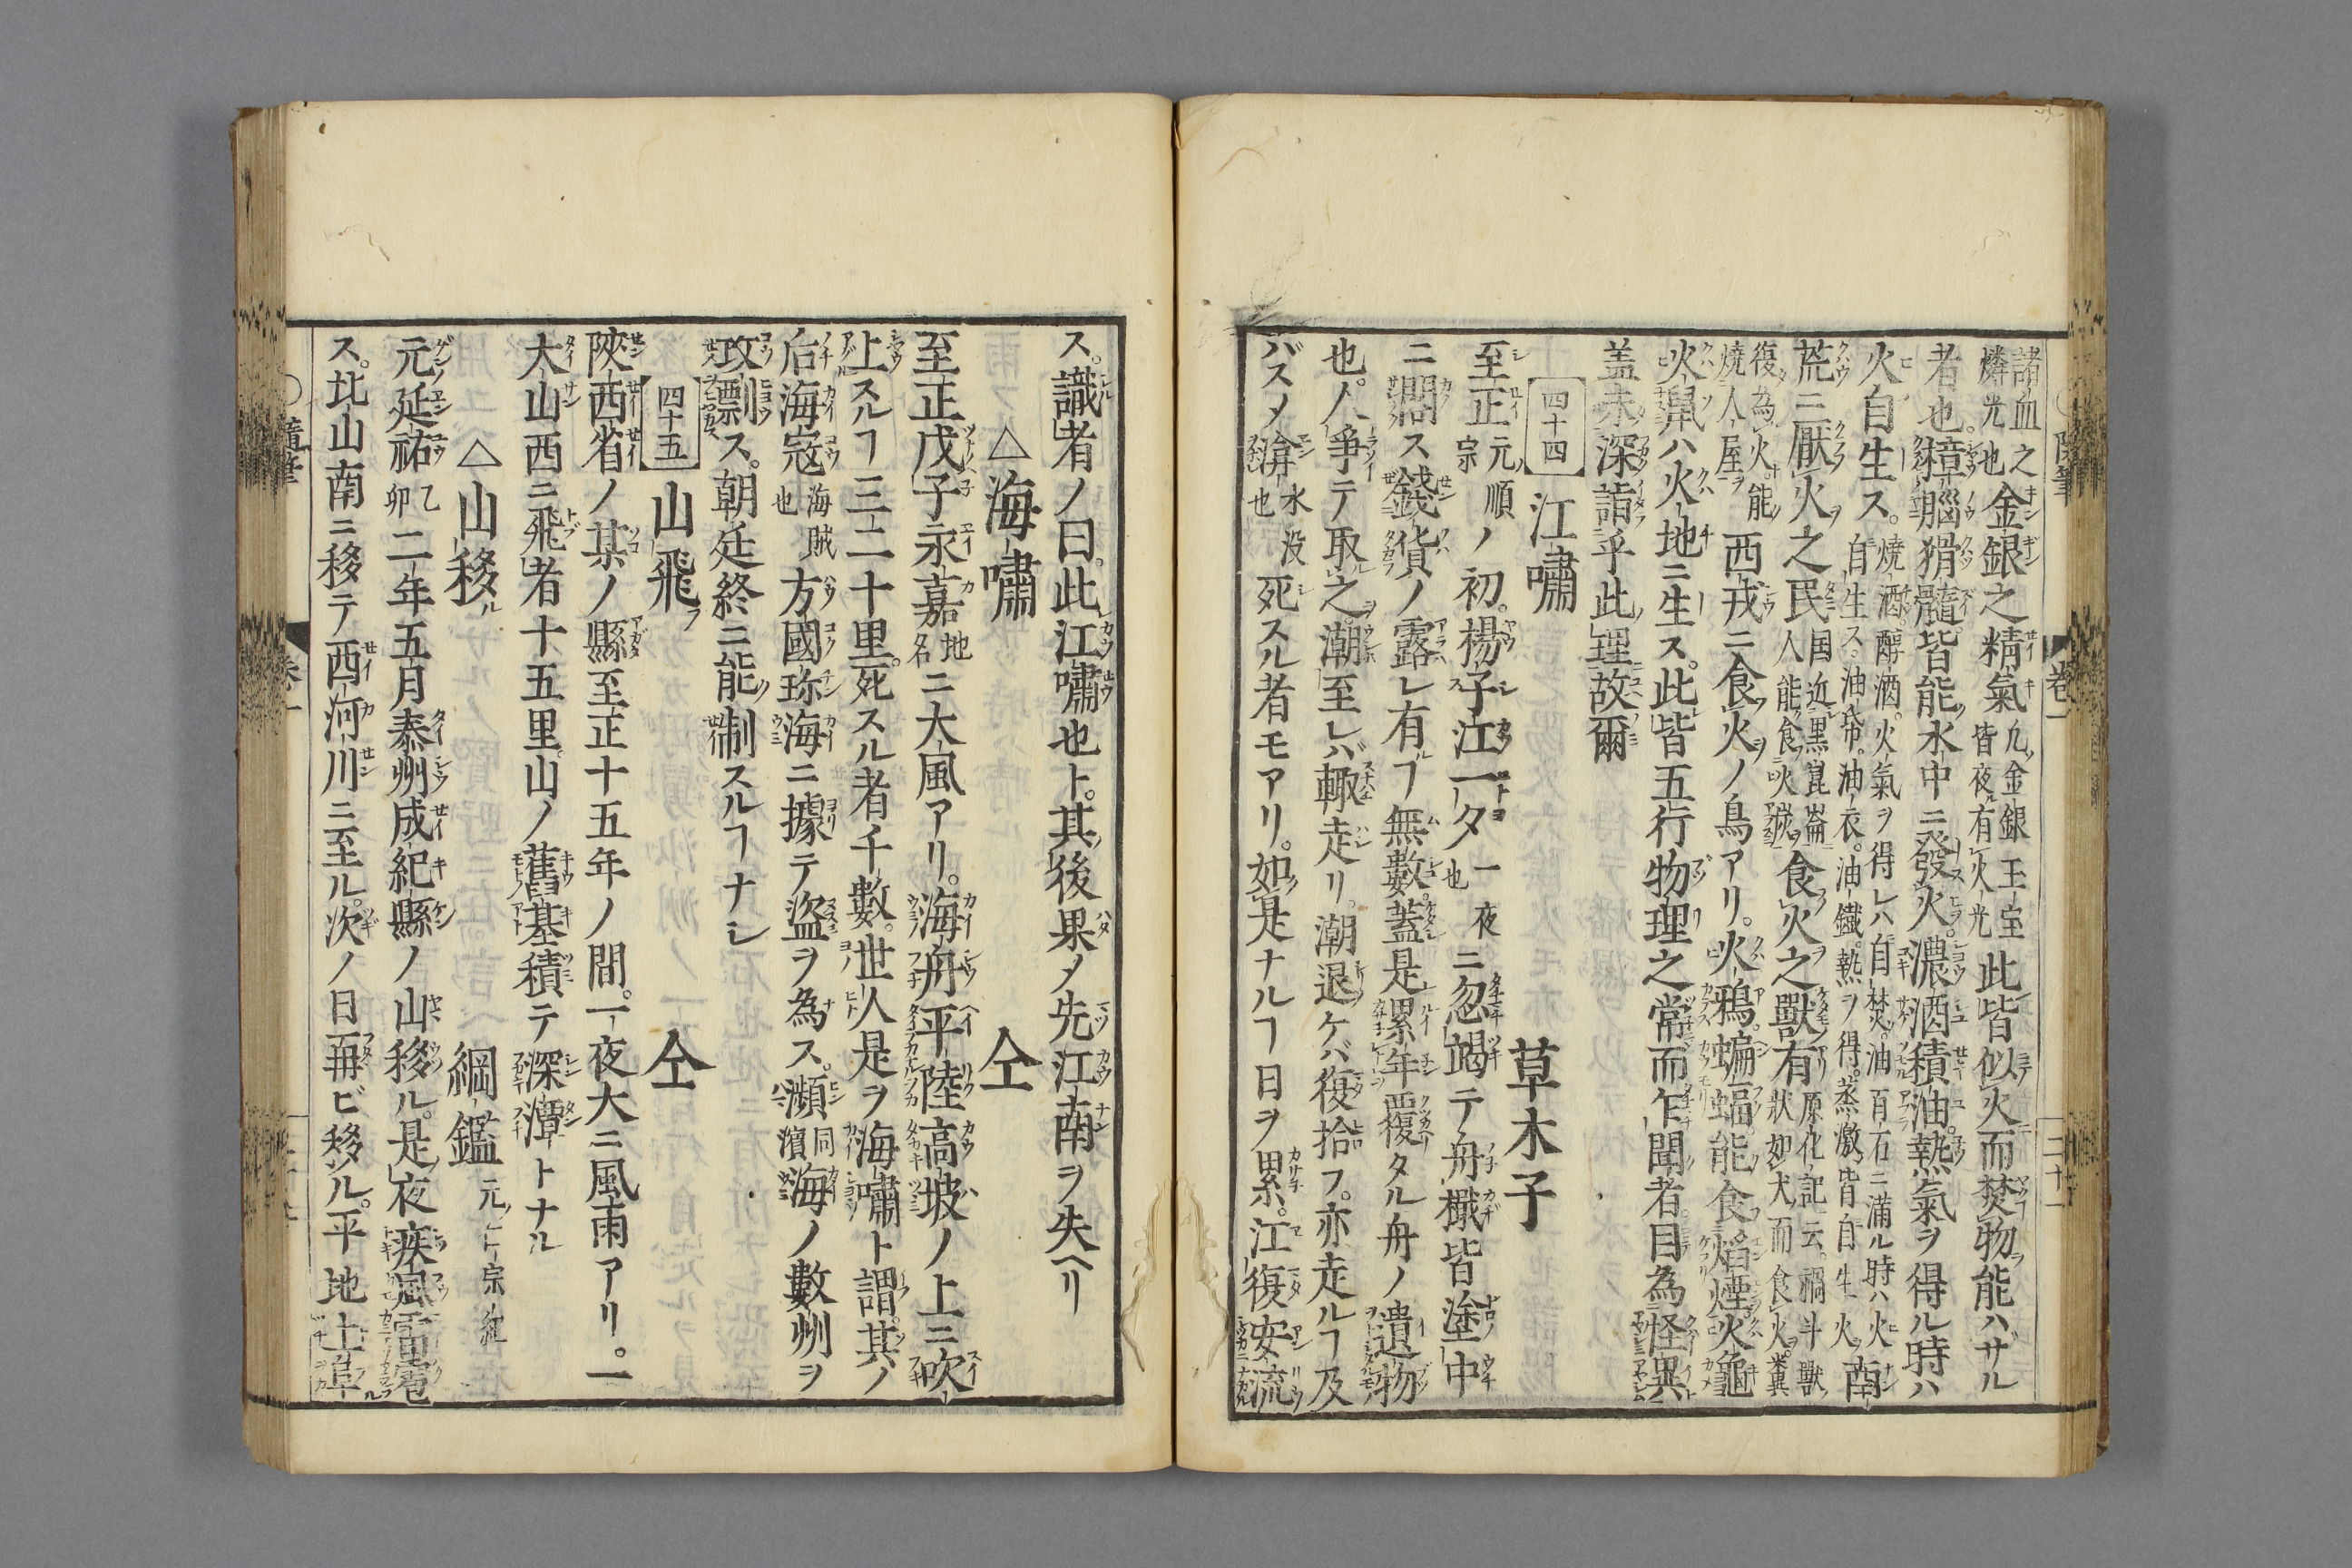 諸血之
燐光也金銀之精氣
凡金銀玉宝
皆夜有火光
此皆似火而焚物能ハザル
者也。獐腦猾髓皆能水中ニ發火。濃酒積油。熱氣ヲ得ル時ハ
火自生ス。
燒酒。醇酒。火氣ヲ得レハ自焚。油百石ニ滿ル時ハ火
自生ス。油帋。油衣。油鐵。熱ヲ得。蒸激皆自生火
南
荒ニ厭火之民
国近黒崑崙
人能食火炭
食火之獸有
原化記云。禍斗獸
狀如犬而食火。糞
復為火。能
燒人屋
西戎ニ食火ノ鳥アリ。火鴉蝙蝠能食焰煙火龜
火鼠ハ火地ニ生ス。此皆五行物理之常而乍聞者目為怪異
盖未深詣乎此理故爾
四十四 江嘯 草木子
至正
元ノ順
宗
ノ初。楊子江一夕
一夜
也
ニ忽竭テ舟檝皆塗中
ニ閣ス錢貨ノ露レ有ルヿ無數。蓋是累年覆タル舟ノ遺物
也。人爭テ取之。潮至レバ輙走リ。潮退ケバ復拾フ。亦走ルヿ及
バスメ渰
水没
也
死スル者モアリ。如是ナルヿ日ヲ累。江復安流
ス。識者ノ曰。此江嘯也ト。其後果メ先江南ヲ失ヘリ
△海嘯 仝
至正戊子永嘉
地
名
ニ大風アリ。海舟平陸高坡ノ上ニ吹
上スルヿ三二十里。死スル者千數。世人是ヲ海嘯ト謂。其ノ
后海寇
海賊
也
方國珎海ニ據テ盜ヲ為ス。瀕
同
濱
海ノ數州ヲ
攻剽ス。朝廷終ニ能制スルヿナシ
四十五 山飛 仝
陝西省ノ某ノ縣至正十五年ノ間。一夜大ニ風雨アリ。一
大山西ニ飛者十五里。山ノ舊基積テ深潭トナル
△山移ル 綱鑑
元ノ仁宗ノ紀
元延祐
乙
卯
二年五月泰州成紀縣ノ山移ル。是夜疾風雷電
ス。北山南ニ移テ西河川ニ至ル。次ノ日再ビ移ル。平地土阜